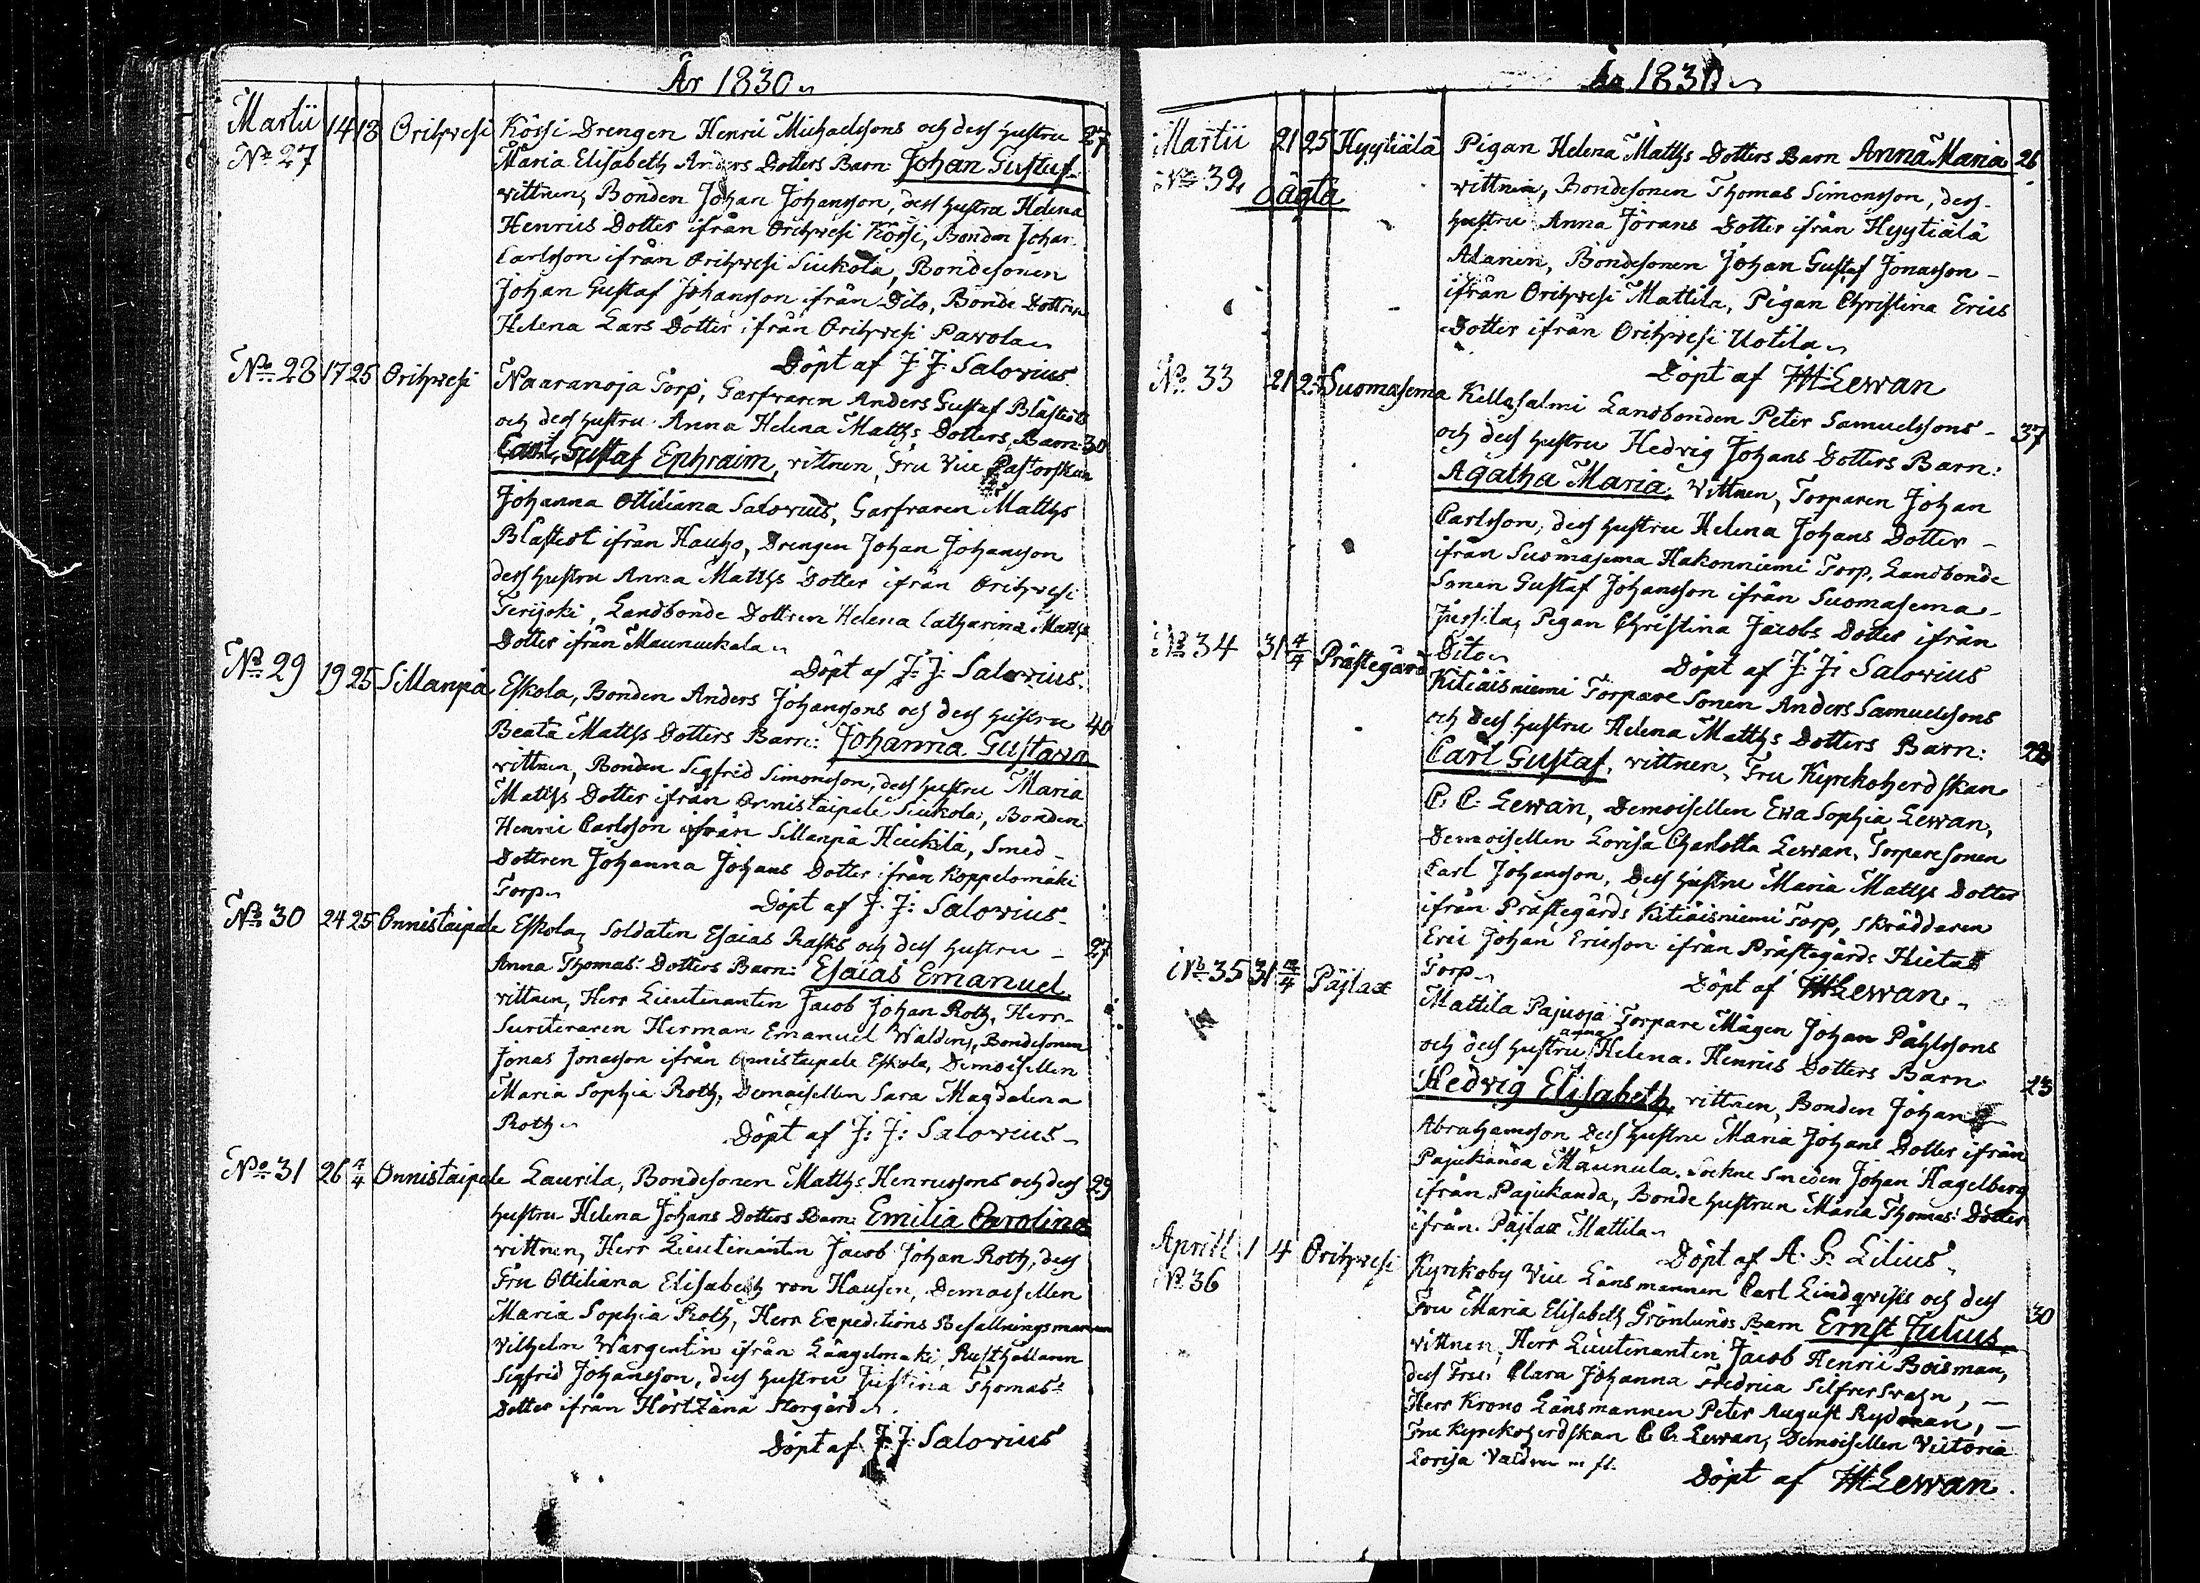 År 1830
Martii 14 18 Orihvesi Kössi Drengen Henric Michaelssons och dess hustru 27
No 27 Maria Elisabeth Anders Dotters Barn: Johan Gustaf
vittnen, Bonden Johan Johansson, dess hustru Helena
Henrics Dotter ifrån Orihvesi Kössi, Bonden Johan
Carlsson ifrån Orihvesi Siukola, Bondesonen
Johan Gustaf Johansson ifrån Dito, Bonde Dottren
Helena Lars Dotter ifrån Orihvesi Pavola
Döpt af J: J: Salovius
No 28 17 25 Orihvesi Naaranoja Torp, Garfvaren Anders Gustaf Blåstedts
och dess hustru Anna Helena Matths Dotters Barn: 30
Carl Gustaf Ephraim, vittnen, Fru Vice Pastorskan
Johanna Ottiliana Salovius, Garfvaren Matths
Blåstedt ifrån Hauho, Drengen Johan Johansson
dess hustru Anna Matths Dotter ifrån Orihvesi
Terijoki, Landbonde Dottren Helena Catharina Matths
Dotter ifrån Maunukala
Döpt af J: J: Salovius
No 29 19 25 Sillanpä Eskola, Bonden Anders Johanssons och dess hustru 40
Beata Matths Dotters Barn: Johanna Gustava
vittnen, Bonden Sigfrid Simonsson, dess hustru Maria
Matths Dotter ifrån Onnistaipale Siukola, Bonden
Henric Carlsson ifrån Sillanpä Heikilä, Smed
Dottren Johanna Johans Dotter ifrån Koppelomäki
Torp
Döpt af J: J: Salovius
No 30 24 25 Onnistaipale Eskola, Soldaten Esaias Rasks och dess hustru 27
Anna Thomas: Dotters Barn: Esaias Emanuel
vittnen, Herr Lieutenanten Jacob Johan Roth, Herr
Emanuel Herman Bondesonen
Jonas Jonasson ifrån Onnistaipale Eskola, Demoisellen
Maria Sophia Roth, Demoisellen Sara Magdalena
Roth
Döpt af J: J: Salovius
No 31 26 4/4 Onnistaipale Laurila, Bondesonen Matths Henricssons och dess 29
hustru Helena Johans Dotters Barn: Emilia Carolina
vittnen, Herr Lieutenanten Jacob Johan Roth, dess
Fru Ottiliana Elisabeth von Hausen, Demoisellen
Maria Sophia Roth, Herr Expeditions Befallningsmannen
Vilhelm Wargentin ifrån Längelmäki, Rusthållaren
Sigfrid Johansson, dess hustru Justina Thomas:
Dotter ifrån Storgård
Döpt af J: J: Salovius
År 1830
Martii 21 25 Hyytiälä Pigan Helena Matths Dotters Barn Anna Maria 26
No 32 Oägta vittnen, Bondesonen Thomas Simonsson, dess
hustru Anna Jörans Dotter ifrån Hyytiälä
Alanen, Bondesonen Johan Gustaf Jonasson
ifrån Orihvesi Mattila, Pigan Christina Erics
Dotter ifrån Orihvesi Uotila
Döpt af Lewan
No 33 21 Suomasema Kellosalmi Landbonden Peter Samuelssons 37
och dess hustru Hedvig Johans Dotters Barn:
Agatha Maria, vittnen, Torparen Johan
Carlsson, dess hustru Helena Johans Dotter
ifrån Suomasema Hakonniemi Torp, Landbonde
Sonen Gustaf Johansson ifrån Suomasema
Jussila, Pigan Christina Jacobs Dotter ifrån
Dito
Döpt af J: J: Salovius
No 34 31 4/4 Prästegård Kitiäisniemi Torpare Sonen Anders Samuelssons
och dess hustru Helena Matths Dotters Barn:
Carl Gustaf, vittnen, Fru Kyrkoherdskan
C. C. Lewan, Demoisellen Eva Sophia Lewan,
Demoisellen Lovisa Charlotta Lewan, Torparesonen
Carl Johansson, Dess hustru Maria Matths Dotter
ifrån Prästegårds Kitiäisniemi Torp, Skräddaren
Eric Johan Ericsson ifrån Prästegårds Hieta
Torp
Döpt af Lewan
No 35 31 /4 Päjlax Mattila Pajuoja Torpare Mågen Johan Påhlssons
och dess hustru Anna Helena Henrics Dotters Barn 23
Hedvig Elisabeth, vittnen, Bonden Johan
Abrahamsson Dess hustru Maria Johans Dotter ifrån
Pajukanda Maunula, Sockne Smeden Johan Hagelberg
ifrån Pajukanda, Bonde hustrun Maria Thomas: Dotter
ifrån Päjlax Mattila
Döpt af A. G. Lilius
Aprill 1 4 Orihvesi Kyrkoby Vice Länsmannen Carl Lindqvists och dess
No 36 Fru Maria Elisabeth Grönlunds Barn Ernst Julius 30
vittnen, Herr Lieutenanten Jacob Henric Boisman,
dess Fru Clara Johanna Fredrica Silfversvahn,
Herr Krono Länsmannen Peter August Rydman,
Fru Kyrkoherdskan C. C. Lewan, Demoisellen Victoria
Lovisa m fl.
Döpt af Lewan